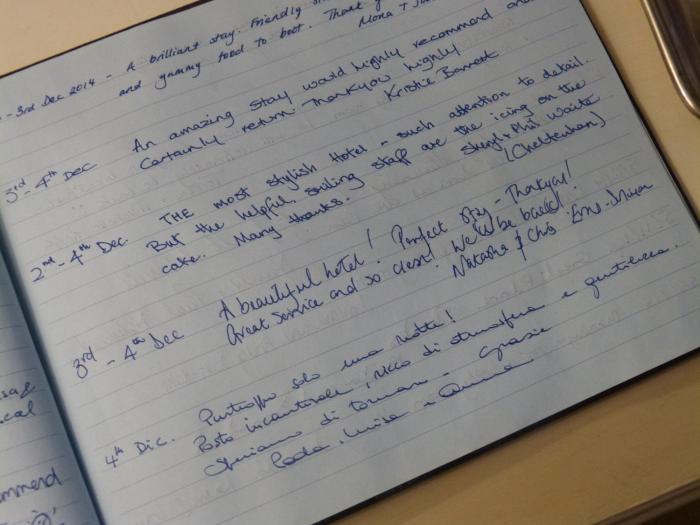 - 3rd Dec 2014 - A brilliant stay. Friendly
and yummy food to boot. Thank
Mona +
3rd - 4th Dec An amazing stay would highly recommend and
Certainly return Thankyou highly
Kristie Barrett
2nd - 4th Dec. THE most stylish Hotel - such attention to detail.
But the helpful, smiling staff are the icing on the
cake. Many thanks. Sheryl + Phil Waite
(Cheltenham)
3rd - 4th Dec A beautiful hotel! Perfect stay - Thankyou!
Great service and so clean! We'll be back!
Natasha & Chris
4th Dic. Purtroppo solo una notte!
Posto incantevole, ricco di atmosfera e gentilezza.
Speriamo di tornare - Grazie
Paola, Luisa e
ommend